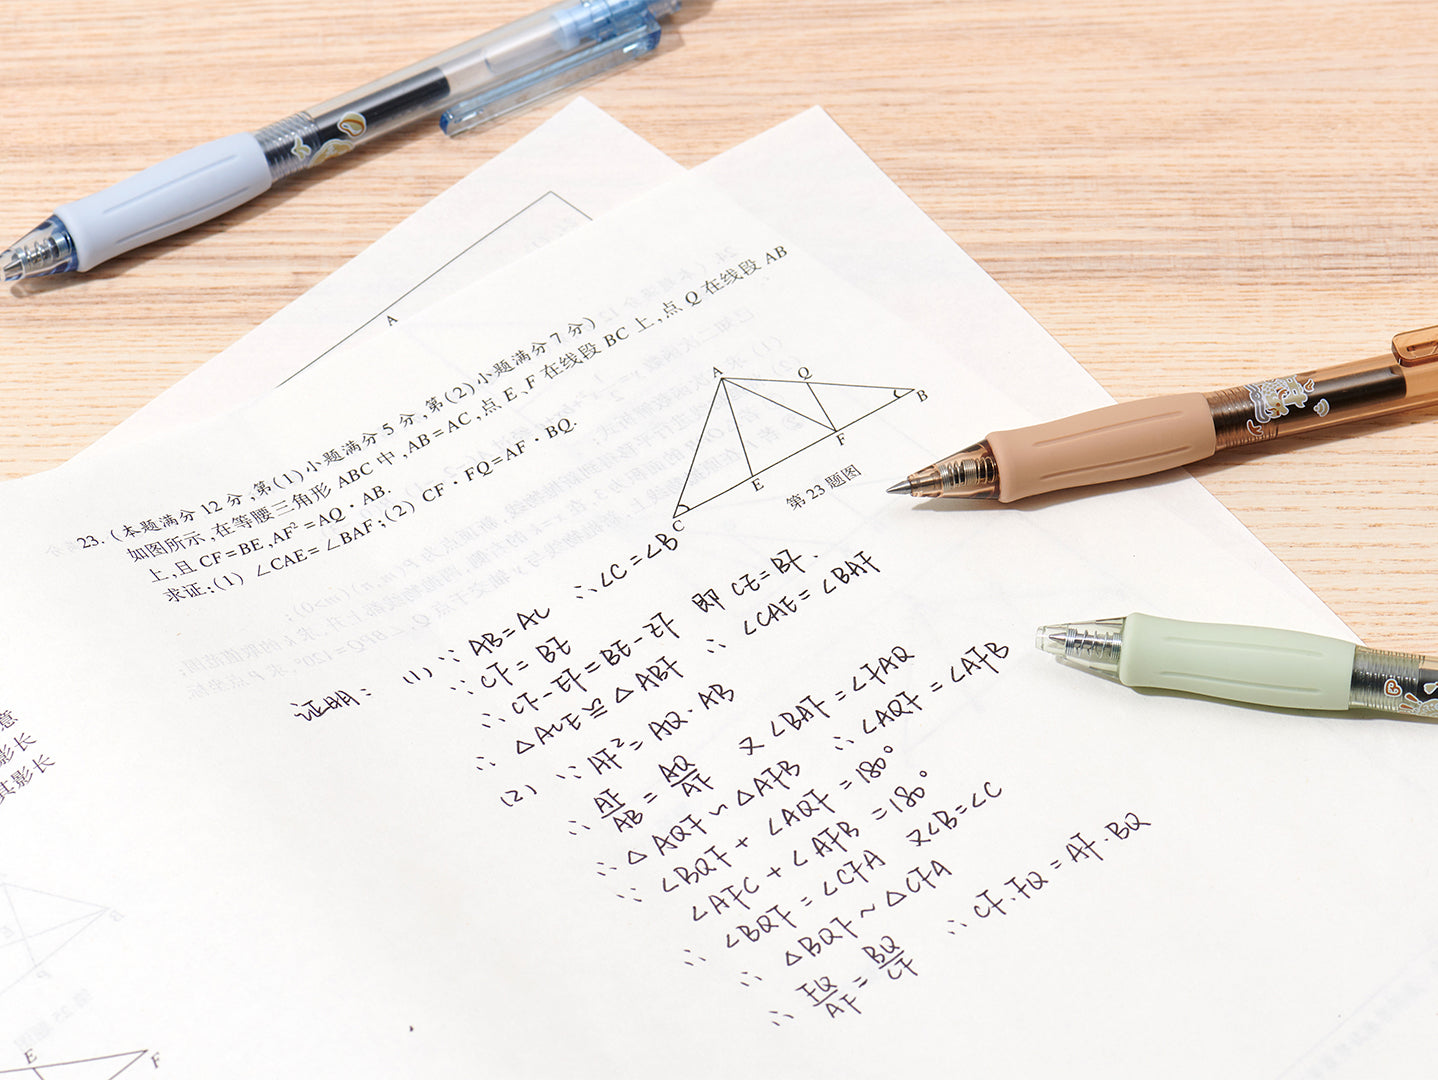 23.(本题满分 12 分,第(1)小题满分 5 分,第(2)小题满分 7 分)
如图所示,在等腰三角形 ABC 中,AB=AC,点 E、F 在线段 BC 上,点 Q 在线段 AB
上,且 CF=BE,AF²=AQ·AB.
求证:(1) ∠CAE=∠BAF;(2) CF·FQ=AF·BQ.
A
Q
B
F
E
C
第 23 题图
证明: (1) ∵ AB=AC ∴∠C=∠B
∵ CF=BE
∴ CF-EF=BE-EF 即 CE=BF.
∴ △ACE≌△ABF ∴ ∠CAE=∠BAF
(2) ∵ AF²=AQ·AB
∴ AF/AB=AQ/AF 又∠BAF=∠FAQ
∴ △AQF∽△AFB ∴ ∠AQF=∠AFB
∵ ∠BQF+∠AQF=180°
∠AFC+∠AFB=180°
∴ ∠BQF=∠CFA 又∠B=∠C
∴ △BQF∽△CFA
∴ FQ/AF=BQ/CF ∴ CF·FQ=AF·BQ
A
意
影长
其影长
B
E
P
E
F